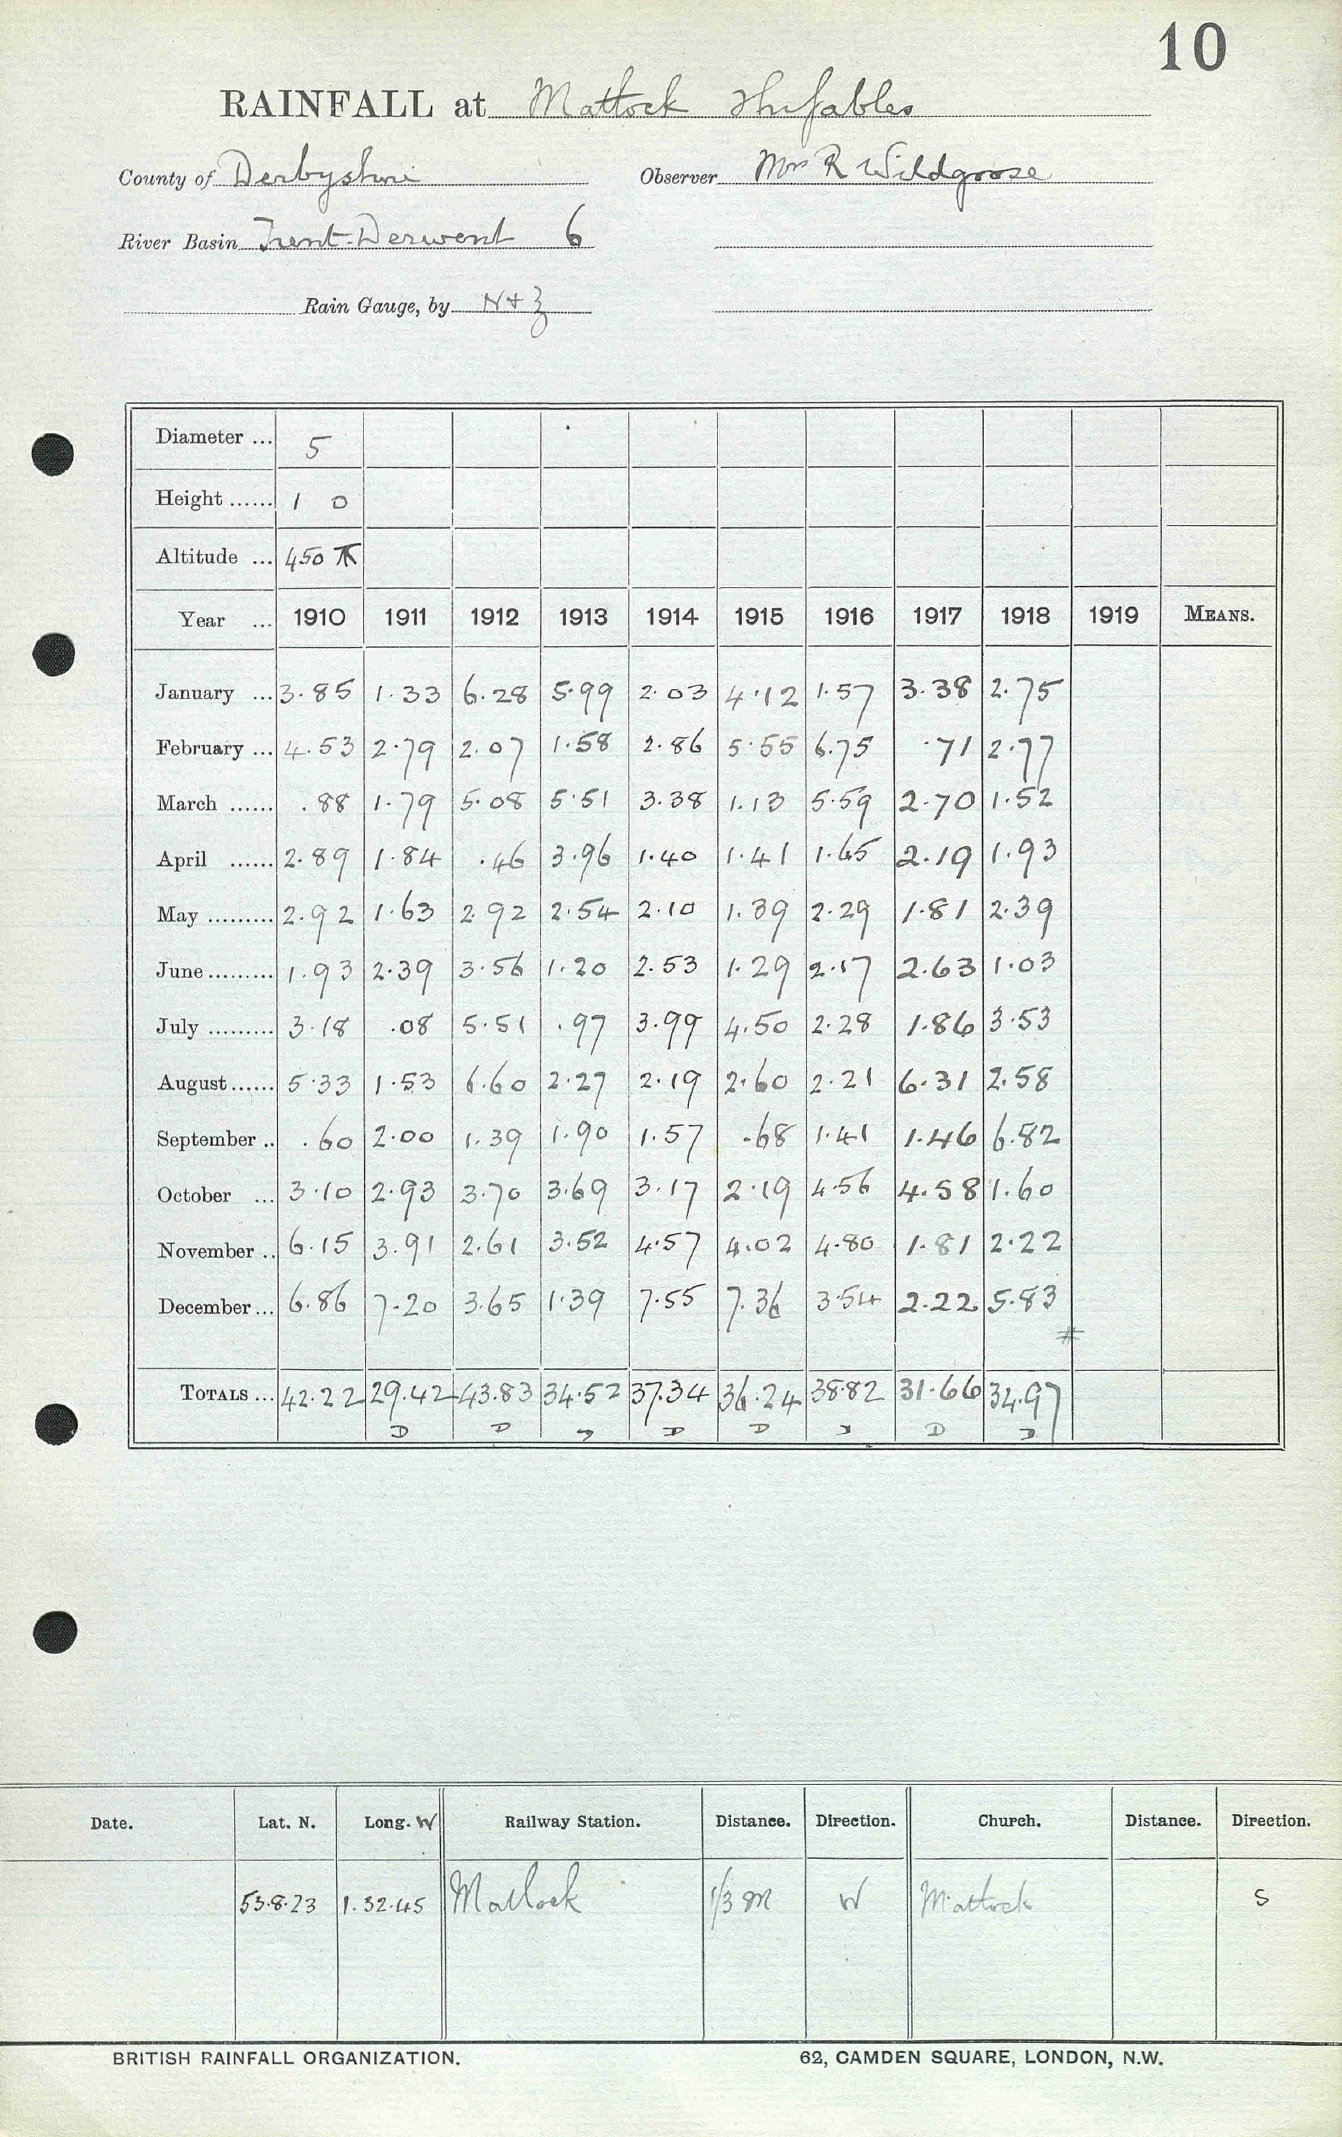 10
RAINFALL at Matlock
County of Derbyshire Observer Mrs R Wildgoose
River Basin Trent-Derwent 6
Rain Gauge, by N+Z
Diameter ... 5
Height ...... 1 0
Altitude ... 450
Year ... 1910 1911 1912 1913 1914 1915 1916 1917 1918 1919 MEANS.
January ... 3.85 1.33 6.28 5.99 2.03 4.12 1.57 3.38 2.75
February ... 4.53 2.79 2.07 1.58 2.86 5.55 6.75 .71 2.77
March ...... .88 1.79 5.08 5.51 3.38 1.13 5.59 2.70 1.52
April ...... 2.89 1.84 .46 3.96 1.40 1.41 1.65 2.19 1.93
May ......... 2.92 1.63 2.92 2.54 2.10 1.39 2.29 1.81 2.39
June ......... 1.93 2.39 3.56 1.20 2.53 1.29 2.17 2.63 1.03
July ......... 3.18 .08 5.51 .97 3.99 4.50 2.28 1.86 3.53
August ...... 5.33 1.53 6.60 2.27 2.19 2.60 2.21 6.31 2.58
September .. .60 2.00 1.39 1.90 1.57 .68 1.41 1.46 6.82
October ... 3.10 2.93 3.70 3.69 3.17 2.19 4.56 4.58 1.60
November .. 6.15 3.91 2.61 3.52 4.57 4.02 4.80 1.81 2.22
December ... 6.86 7.20 3.65 1.39 7.55 7.36 3.54 2.22 5.83
#
TOTALS ... 42.22 29.42 43.83 34.52 37.34 36.24 38.82 31.66 34.97
D D D D D D D D
Date. Lat. N. Long. W Railway Station. Distance. Direction. Church. Distance. Direction.
53.8.23 1.32.45 Matlock 1/3 m W Matlock S
BRITISH RAINFALL ORGANIZATION. 62, CAMDEN SQUARE, LONDON, N.W.